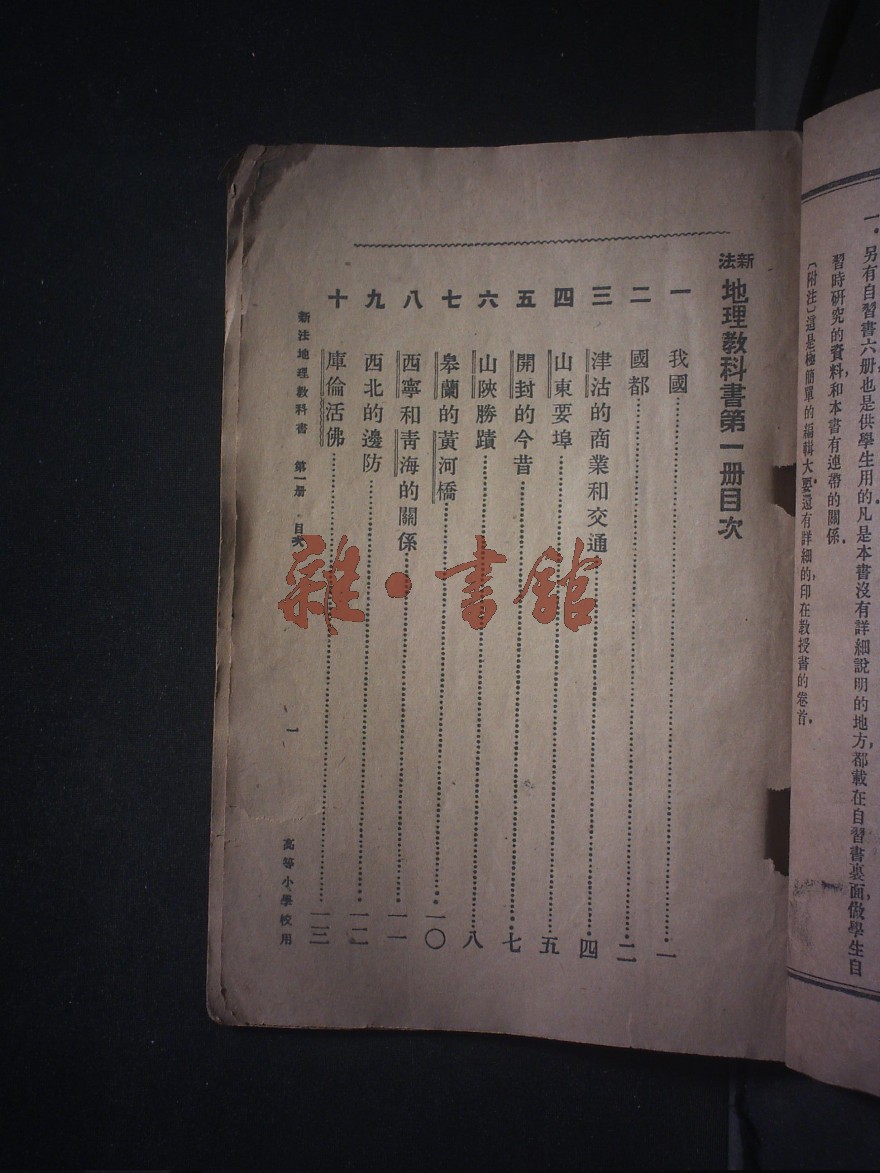 一. 另有自習書六册,也是供學生用的.凡是本書沒有詳細說明的地方,都載在自習書裏面,做學生自
習時研究的資料,和本書有連帶的關係.
〔附注〕這是極簡單的編輯大要,還有詳細的,印在教授書的卷首.
新法 地理教科書第一册目次
一 我國 一
二 國都 二
三 津沽的商業和交通 四
四 山東要埠 五
五 開封的今昔 七
六 山陝勝蹟 八
七 皋蘭的黃河橋 一〇
八 西寧和靑海的關係 一一
九 西北的邊防 一二
十 庫倫活佛 一三
新法地理教科書 第一册 目次 一 高等小學校用
雜·書館